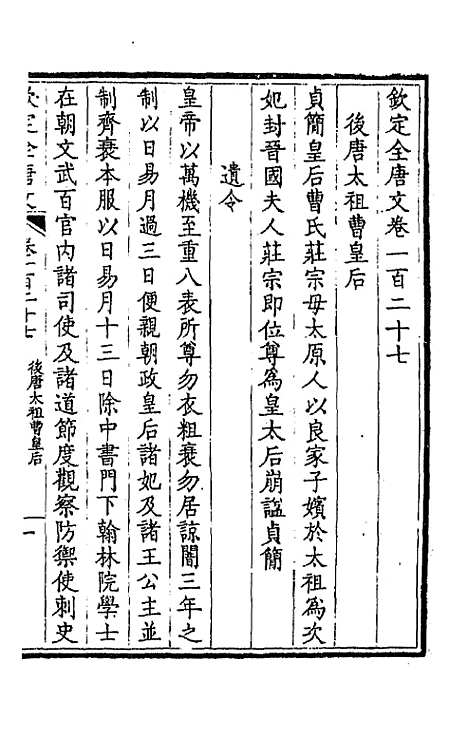 欽定全唐文卷一百二十七
後唐太祖曹皇后
貞簡皇后曹氏莊宗母太原人以良家子嬪於太祖為次
妃封晉國夫人莊宗即位尊為皇太后崩諡貞簡
遺令
皇帝以萬機至重八表所尊勿衣粗衰勿居諒闇三年之
制以日易月過三日便親朝政皇后諸妃及諸王公主並
制齊衰本服以日易月十三日除中書門下翰林院學士
在朝文武百官內諸司使及諸道節度觀察防禦使刺史
欽定全唐文
卷一百二十七
後唐太祖曹皇后
一